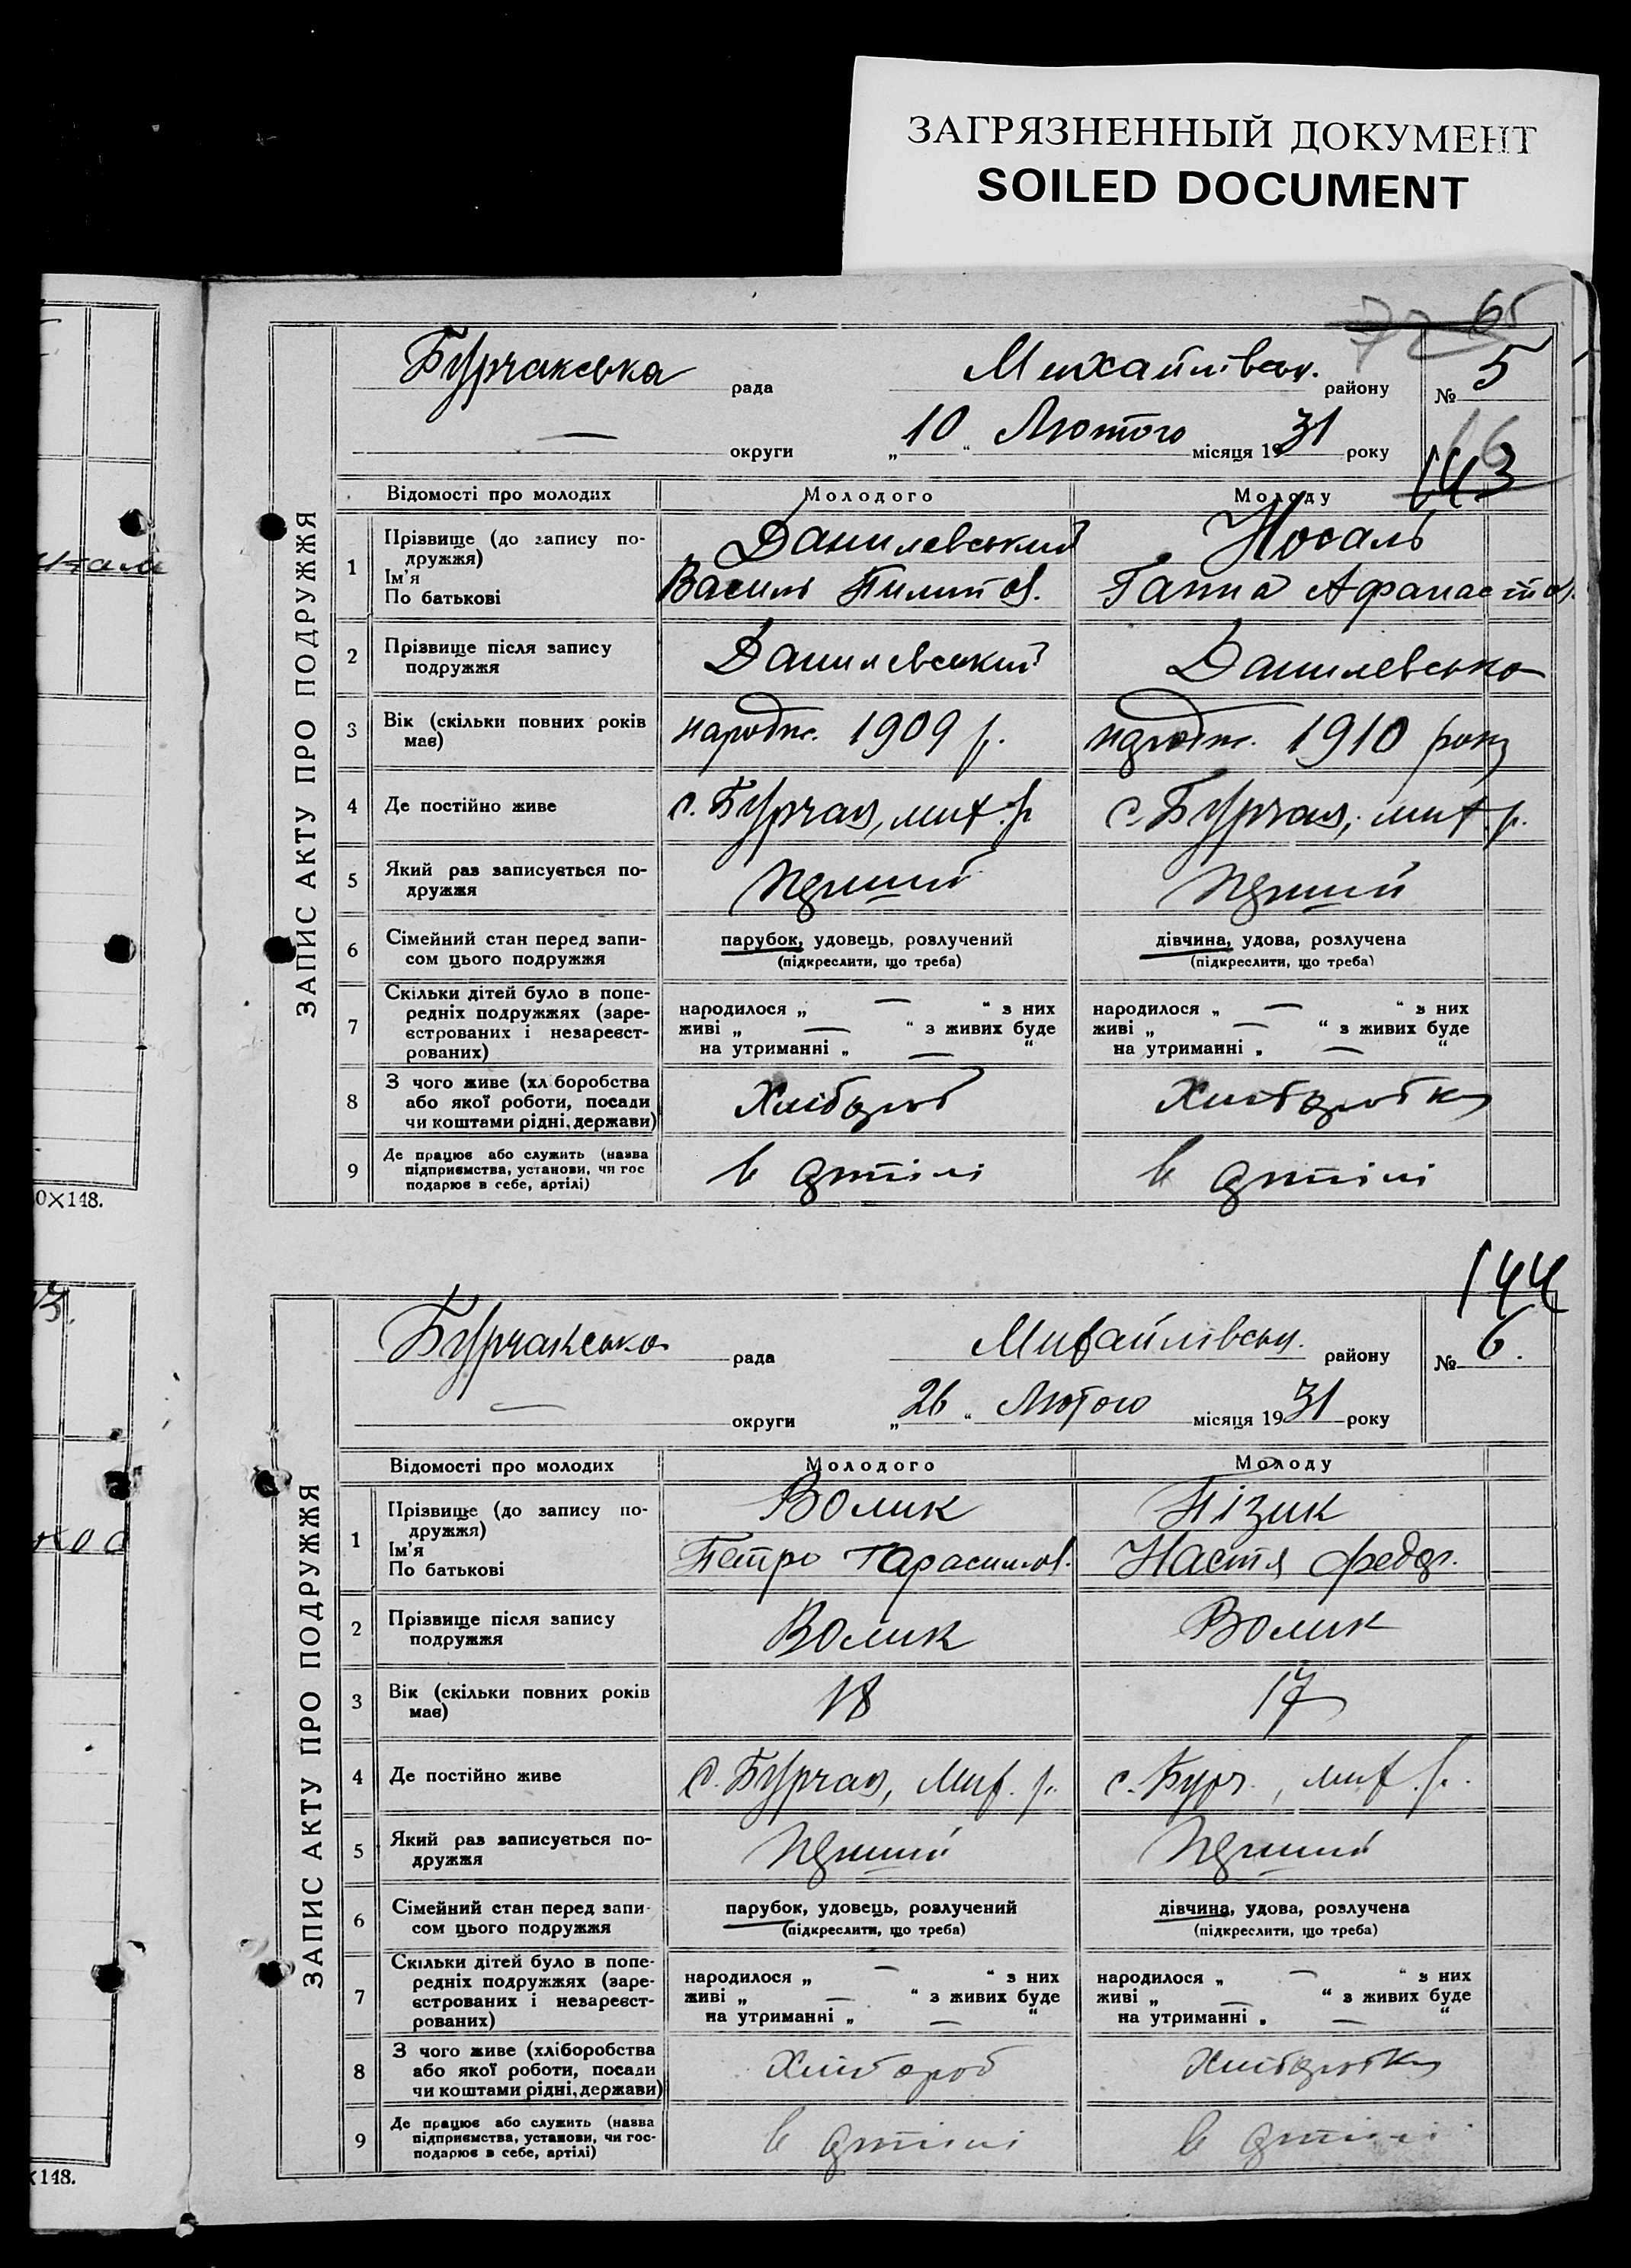 ЗАГРЯЗНЕННЫЙ ДОКУМЕНТ
SOILED DOCUMENT
72 65
Бурчакська рада Михайлівськ. району № 5
— округи „10“ Лютого місяця 1931 року
16
143
ЗАПИС АКТУ ПРО ПОДРУЖЖЯ
Відомості про молодих Молодого Молоду
1 Прізвище (до запису по-
дружжя)
Ім'я
По батькові
Данилевський Носаль
Василь Пилипов. Ганна Афанасіїв.
2 Прізвище після запису
подружжя
Данилевський Данилевська
3 Вік (скільки повних років
має)
народж. 1909 р. народж. 1910 року
4 Де постійно живе с. Бурчак, мих. р. с. Бурчак, мих. р.
5 Який раз записується по-
дружжя
перший перший
6 Сімейний стан перед запи-
сом цього подружжя
парубок, удовець, розлучений дівчина, удова, розлучена
(підкреслити, що треба) (підкреслити, що треба)
7 Скільки дітей було в попе-
редніх подружжях (заре-
єстрованих і незареєст-
рованих)
народилося „ — “ з них народилося „ — “ з них
живі „ — “ з живих буде живі „ — “ з живих буде
на утриманні „ — “ на утриманні „ — “
8 З чого живе (хл боробства
або якої роботи, посади
чи коштами рідні, держави)
Хлібороб Хліборобка
9 Де працює або служить (назва
підприємства, установи, чи гос
подарює в себе, артілі)
в артілі в артілі
0×148.
144
Бурчакська рада Михайлівськ. району № 6.
— округи „26“ Лютого місяця 1931 року
ЗАПИС АКТУ ПРО ПОДРУЖЖЯ
Відомості про молодих Молодого Молоду
1 Прізвище (до запису по-
дружжя)
Ім'я
По батькові
Волик Пізик
Петро Гарасимов. Настя Федор.
2 Прізвище після запису
подружжя
Волик Волик
3 Вік (скільки повних років
має)
18 17
4 Де постійно живе с. Бурчак, мих. р. с. Бурч., мих. р.
5 Який раз записується по-
дружжя
перший перший
6 Сімейний стан перед запи-
сом цього подружжя
парубок, удовець, розлучений дівчина, удова, розлучена
(підкреслити, що треба) (підкреслити, що треба)
7 Скільки дітей було в попе-
редніх подружжях (заре-
єстрованих і незареєст-
рованих)
народилося „ — “ з них народилося „ — “ з них
живі „ — “ з живих буде живі „ — “ з живих буде
на утриманні „ — “ на утриманні „ — “
8 З чого живе (хліборобства
або якої роботи, посади
чи коштами рідні, держави)
Хлібороб Хліборобка
9 Де працює або служить (назва
підприємства, установи, чи гос-
подарює в себе, артілі)
в артілі в артілі
×148.